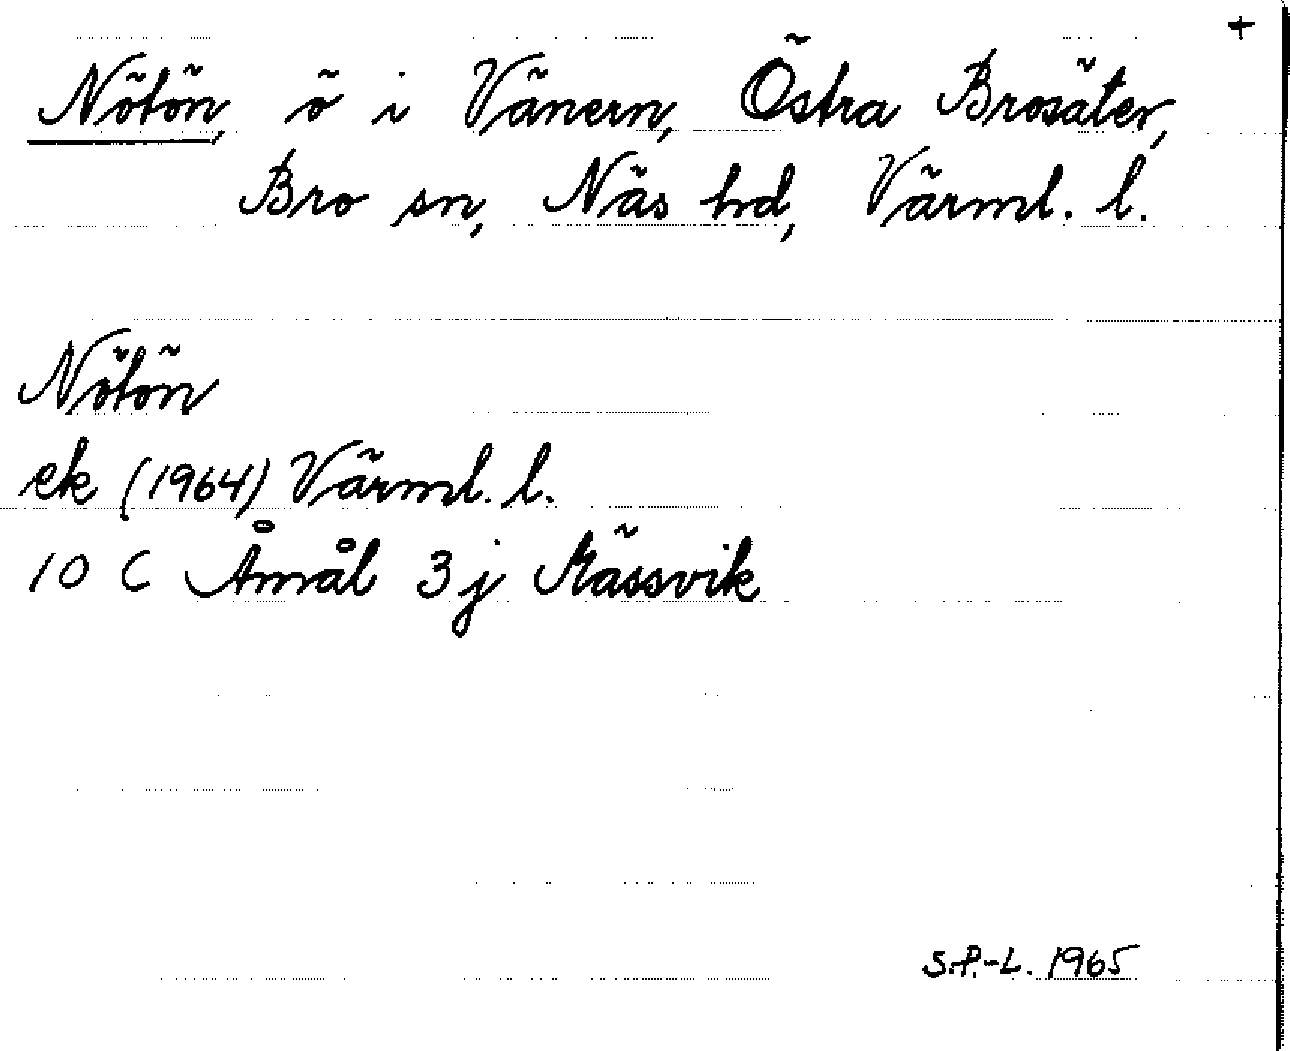 +
Nötön, ö i Vänern, Östra Brosäter,
Bro sn, Näs hd, Värml. l.
Nötön
ek (1964) Värml. l.
10 C Åmål 3 j Mässvik
S.P.-L. 1965